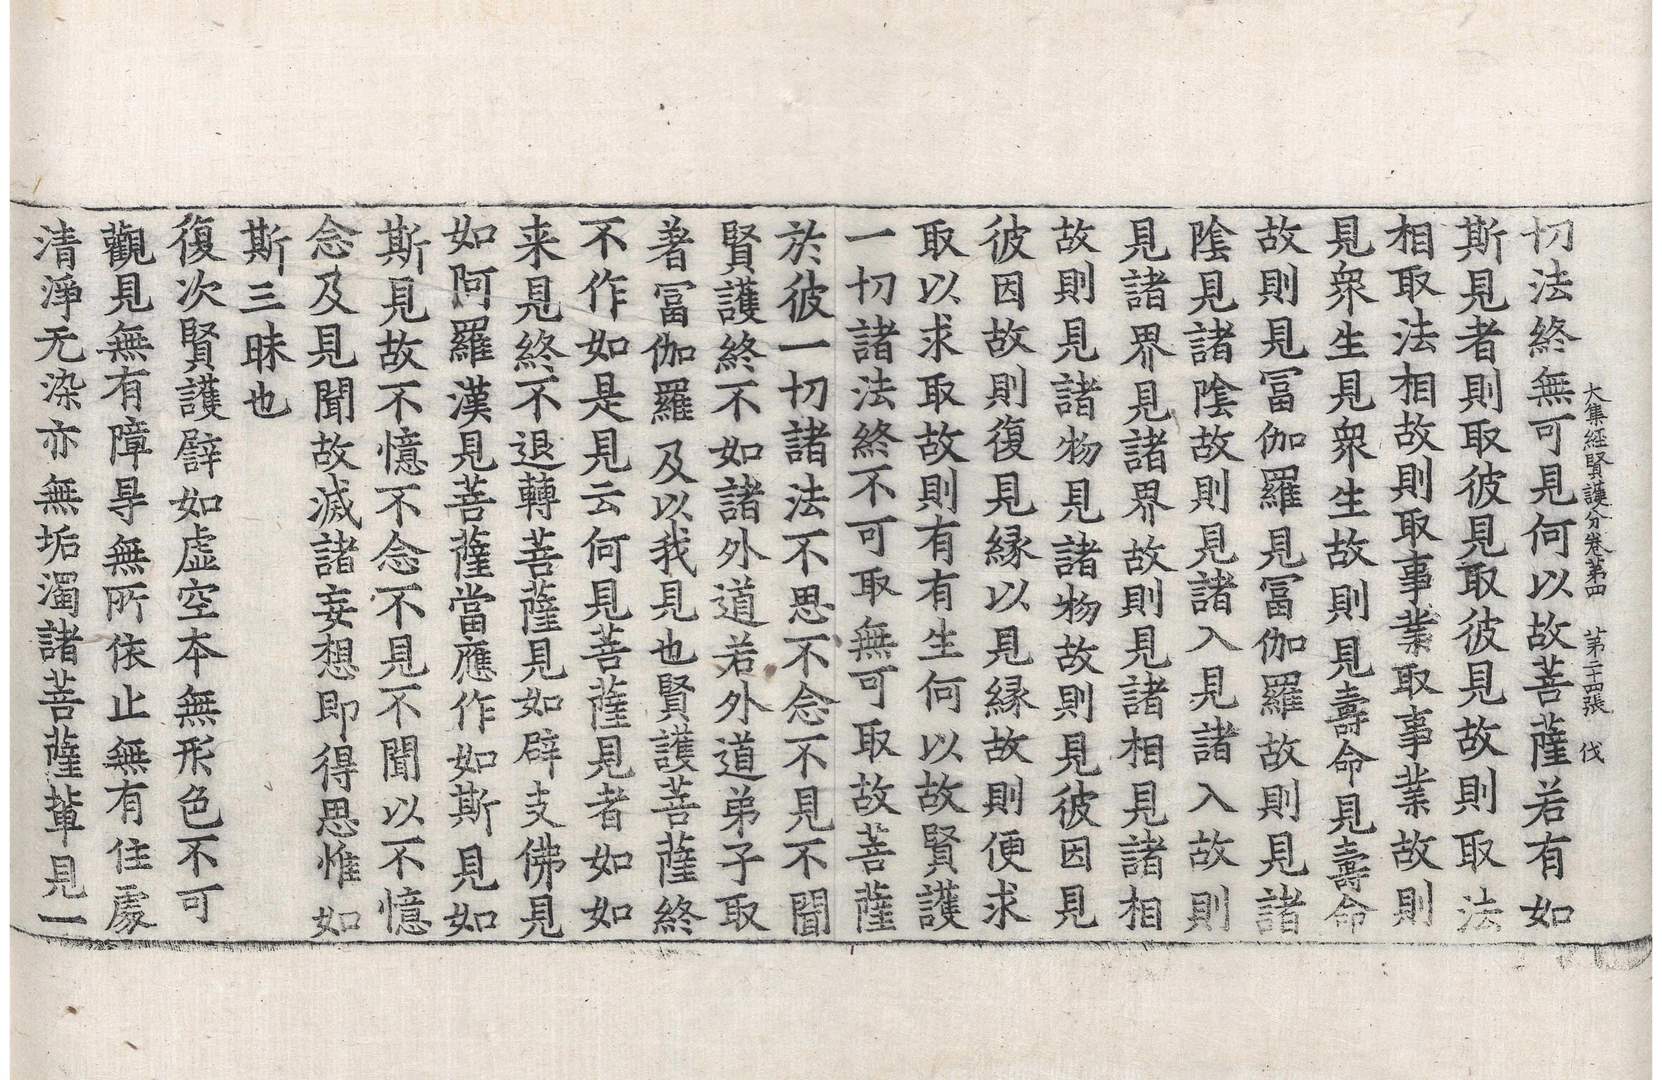 大集經賢護分卷第四　第二十四張　伐
切法終無可見何以故菩薩若有如
斯見者則取彼見取彼見故則取法
相取法相故則取事業取事業故則
見衆生見衆生故則見壽命見壽命
故則見冨伽羅見冨伽羅故則見諸
陰見諸陰故則見諸入見諸入故則
見諸界見諸界故則見諸相見諸相
故則見諸物見諸物故則見彼因見
彼因故則復見縁以見縁故則便求
取以求取故則有有生何以故賢護
一切諸法終不可取無可取故菩薩
於彼一切諸法不思不念不見不聞
賢護終不如諸外道若外道弟子取
著冨伽羅及以我見也賢護菩薩終
不作如是見云何見菩薩見者如如
来見終不退轉菩薩見如辟支佛見
如阿羅漢見菩薩當應作如斯見如
斯見故不憶不念不見不聞以不憶
念及見聞故滅諸妄想即得思惟如
斯三昧也
復次賢護辟如虛空本無形色不可
觀見無有障㝵無所依止無有住處
清淨无染亦無垢濁諸菩薩軰見一